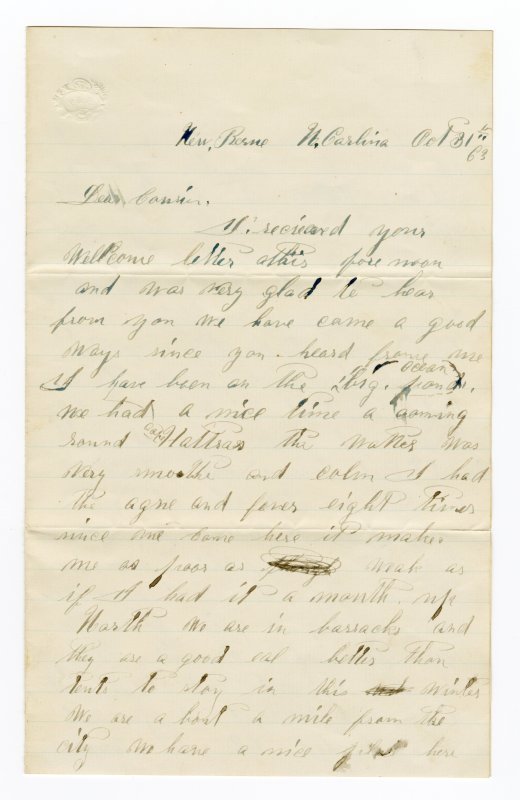 New, Berne N. Carlina Oct 31th
63
Dear Cousin.
I recieved your
Wellcome letter athis fore noon
and was very glad to hear
from you we have came a good
ways since you heard frome me
ocean
I have been on the big. pond.
we had a nice time a coming
round Cap Hattras the watter was
very smoothe and colm I had
the ague and fever eight times
since we came here it makes
me as poor as weak as
if I had it a month up
North We are in barracks and
they are a good eal better than
tents to stay in this winter
We are a bout a mile from the
city We have a nice here